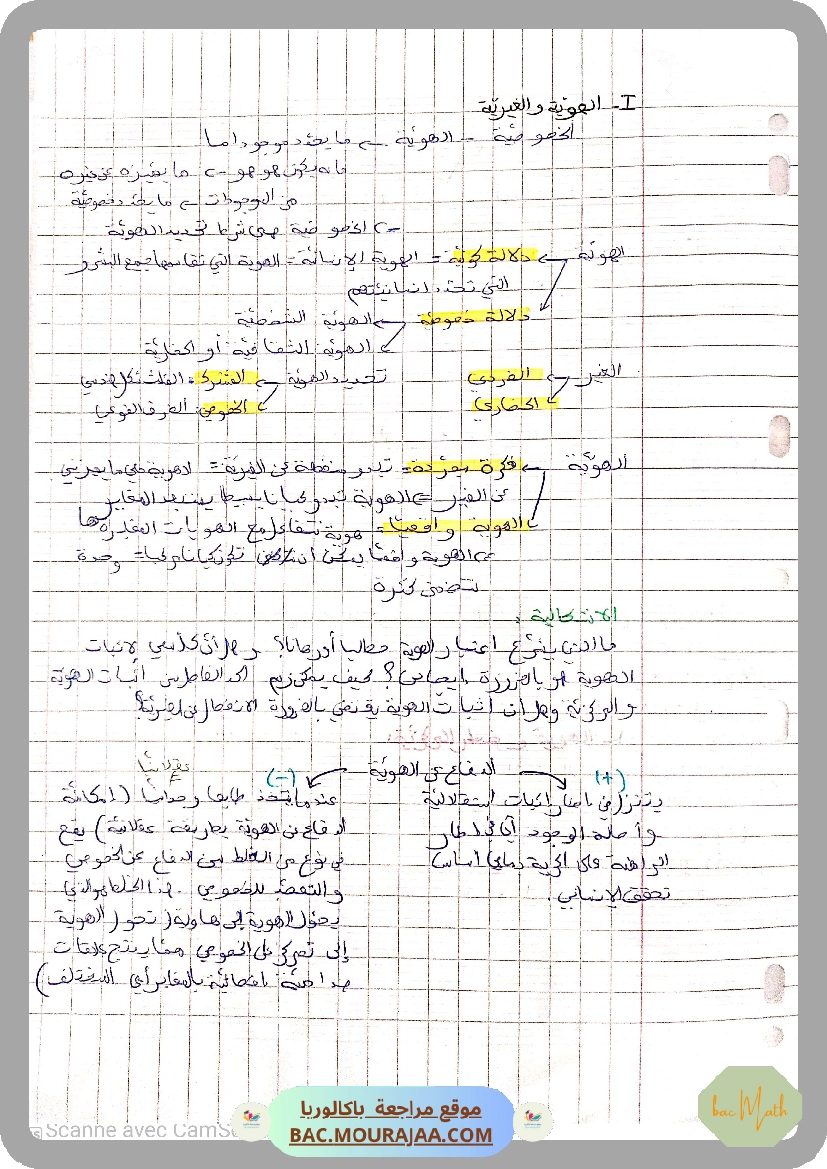 I- الهوية والغيرية
الخصوصية - الهوية ← ما يحدد موجودا ما
بأنه يكون هو هو ← ما يميزه عن غيره
من الموجودات ← ما يحدد خصوصية
← الخصوصية هي شرط تحديد الهوية
الهوية ← دلالة كونية = الهوية الإنسانية = الهوية التي تقاسمها جميع البشر و
التي تحدد إنسانيتهم
دلالة خصوصية ← الهوية الشخصية
← الهوية الثقافية أو الحضارية
الغير ← الفردي تحديد الهوية ← المشترك: المثلث شكل هندسي
← الحضاري ← الخصوصي: الفرق النوعي
الهوية ← فكرة مجردة = تبدو منفصلة عن الغيرية = الهوية هي ما يميزني
عن الغير = الهوية تبدو كيانا بسيطا يستبعد المغاير
الهوية واقعيا = هوية تتفاعل مع الهويات المغايرة لها
← الهوية واقعيا يمكن أن تكون كيانا مركبا = وحدة
تتضمن كثرة
الإشكالية:
ما الذي يشرع اعتبار الهوية مطلبا أو رهانا؟ وهل أن كل سعي لإثبات
الهوية هو بالضرورة إيجابي؟ كيف يمكن رسم الحد الفاصل بين إثبات الهوية
والمركزية وهل أن إثبات الهوية يقتضي بالضرورة الانفصال عن الغيرية؟
الدفاع عن الهوية
(+)
يتنزل في إطار إثبات استقلالية
وأصالة الوجود أي في إطار
المراهنة على الحرية وعلى أساس
تحقق الإنساني.
(-) عقلانيا
عندما يتخذ طابعا وجدانيا (إمكانية
الدفاع عن الهوية بطريقة عقلانية) يقع
في نوع من الخلط بين الدفاع عن الخصوصي
والتعصب للخصوصي. هذا الخلط هو الذي
يحول الهوية إلى هاوية (تحول الهوية
إلى تمركز على الخصوصي مما ينتج علاقات
صدامية إقصائية بالمغاير أي المختلف)
Scanne avec CamS
موقع مراجعة باكالوريا
BAC.MOURAJAA.COM
bac Math